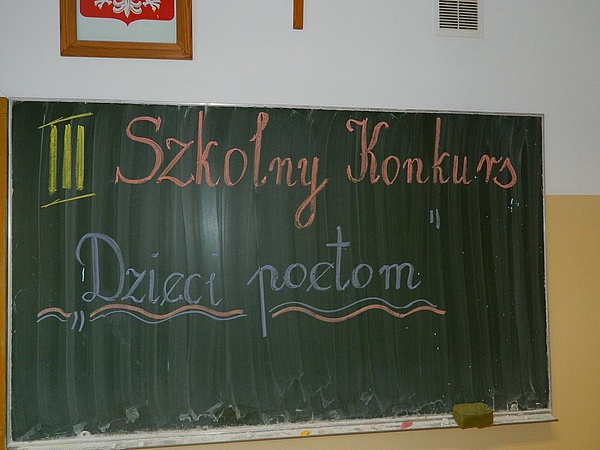 III Szkolny Konkurs
„Dzieci poetom”